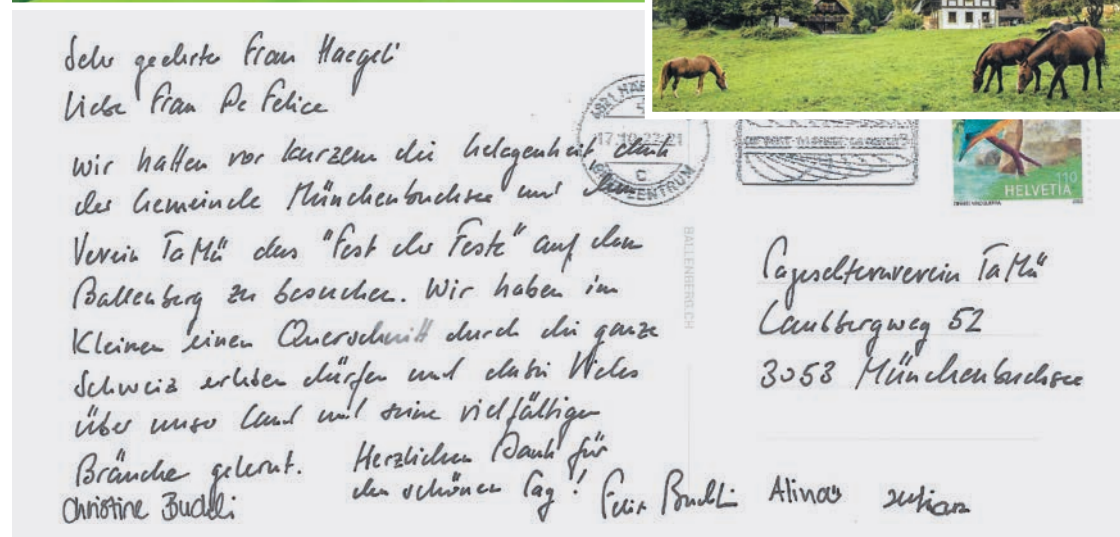 Sehr geehrte Frau Haegeli
Liebe Frau De Felice
wir hatten vor kurzem die Gelegenheit dank
der Gemeinde Münchenbuchsee und dem
Verein TaMü das "Fest der Feste" auf dem
Ballenberg zu besuchen. Wir haben im
Kleinen einen Querschnitt durch die ganze
Schweiz erleben dürfen und dabei Vieles
über unser Land und seine vielfältigen
Bräuche gelernt. Herzlichen Dank für
den schönen Tag!
Christine Buchli Felix Buchli Alina
17.10.22-21
C
HELVETIA
110
BALLENBERG.CH
Tageselternverein TaMü
52
3053 Münchenbuchsee